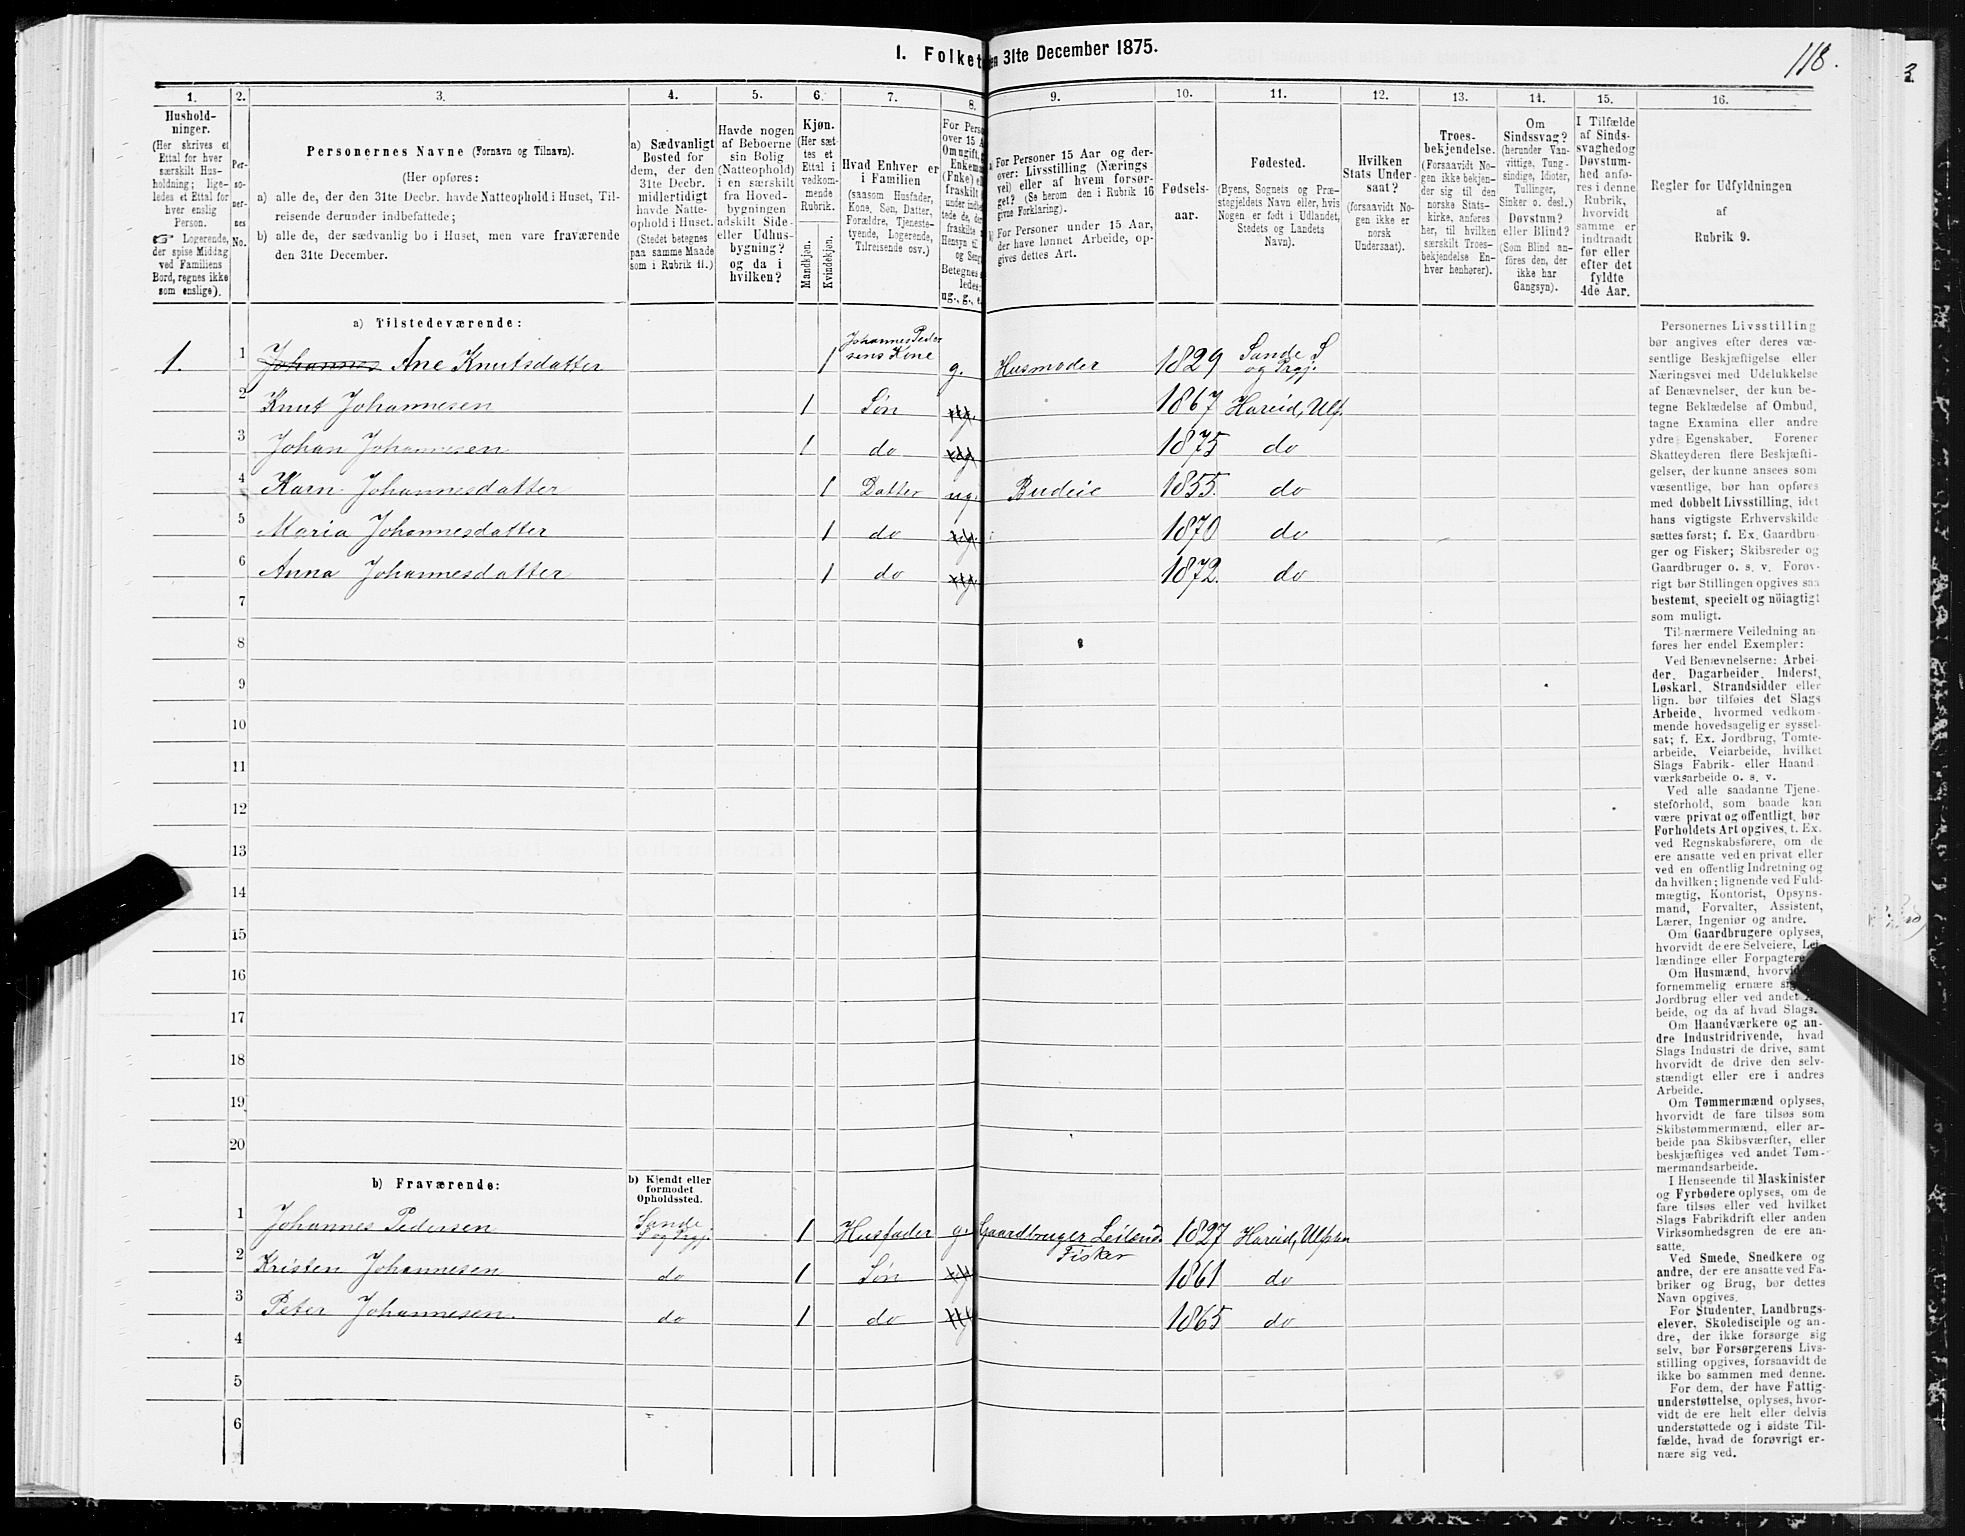 I. Folket en 31te December 1875.
118.
3
1.
Hushold-
ninger.
(Her skrives et
Ettal for hver
særskilt Hus-
holdning; lige-
ledes et Ettal for
hver enslig
Person.
☞ Logerende,
der spise Middag
ved Familiens
Bord, regnes ikke
som enslige).
2.
Per-
so-
ner-
nes
No.
3.
Personernes Navne (Fornavn og Tilnavn).
(Her opføres:
a) alle de, der den 31te Decbr. havde Natteophold i Huset, Til-
reisende derunder indbefattede;
b) alle de, der sædvanlig bo i Huset, men vare fraværende
den 31te December.
4.
a) Sædvanligt
Bosted for
dem, der den
31te Decbr.
midlertidigt
havde Natte-
ophold i Huset.
(Stedet betegnes
paa samme Maade
som i Rubrik 11.)
5.
Havde nogen
af Beboerne
sin Bolig
(Natteophold)
i en særskilt
fra Hoved-
bygningen
adskilt Side-
eller Udhus-
bygning?
og da i
hvilken?
6.
Kjøn.
(Her sæt-
tes et
Ettal i
vedkom-
mende
Rubrik.
Mandkjøn.
Kvindekjøn.
7.
Hvad Enhver er
i Familien
(saasom Husfader,
Kone, Søn, Datter,
Forældre, Tjeneste-
tyende, Logerende,
Tilreisende osv.)
8.
For Perso
over 15 A
Om ugift, g
Enkema
(Enke) el
fraskilt
under indbe
tede de, de
fraskilte
Hensyn til
og Seng
Betegnes s
ledes:
ug., g., e
9.
For Personer 15 Aar og der-
over: Livsstilling (Nærings
vei) eller af hvem forsør-
get? (Se herom den i Rubrik 16
givne Forklaring).
For Personer under 15 Aar,
der have lønnet Arbeide, op-
gives dettes Art.
10.
Fødsels-
aar.
11.
Fødested.
(Byens, Sognets og Præ-
stegjeldets Navn eller, hvis
Nogen er født i Udlandet,
Stedets og Landets
Navn).
12.
Hvilken
Stats Under-
saat?
(forsaavidt No-
gen ikke er
norsk
Undersaat).
13.
Troes-
bekjendelse.
(Forsaavidt No-
gen ikke bekjen-
der sig til den
norske Stats-
kirke, anføres
her, til hvilken
særskilt Troes-
bekjendelse En-
hver henhører).
14.
Om
Sindssvag?
(herunder Van-
vittige, Tung-
sindige, Idioter,
Tullinger,
Sinker o. desl.)
Døvstum?
eller Blind?
(Som Blind an-
føres den, der
ikke har
Gangsyn).
15.
I Tilfælde
af Sinds-
svaghed og
Døvstum-
hed anfø-
res i denne
Rubrik,
hvorvidt
samme er
indtraadt
før eller
efter det
fyldte
4de Aar.
16.
Regler for Udfyldningen
af
Rubrik 9.
a) Tilstedeværende:
1. 1 Johannes Ane Knutsdatter 1 Johannes Peder sens Kone g. Husmoder 1829 Sande S og Prgj.
2 Knut Johannesen 1 Søn ug. 1867 Hareid, Ulf.
3 Johan Johannesen 1 do ug. 1875 do
4 Karn Johannesdatter 1 Datter ug. Budeie 1855. do
5 Maria Johannesdatter 1 do ug. 1870 do
6 Anna Johannesdatter 1 do ug. 1872. do
7
8
9
10
11
12
13
14
15
16
17
18
19
20
b) Fraværende:
b) Kjendt eller
formodet
Opholdssted.
1 Johannes Pedersen Sande S og Prgj. 1 Husfader g. Gaardbruger Leilend. Fisker 1827 Hareid, Ulfsten
2 Kristen Johannesen do 1 Søn ug. 1861 do
3 Peter Johannesen. do 1 do ug. 1865 do
4
5
6
Personernes Livsstilling
bør angives efter deres væ-
sentlige Beskjæftigelse eller
Næringsvei med Udelukkelse
af Benævnelser, der kun be-
tegne Beklædelse af Ombud,
tagne Examina eller andre
ydre Egenskaber. Forener
Skatteyderen flere Beskjæfti-
gelser, der kunne ansees som
væsentlige, bør han opføres
med dobbelt Livsstilling, idet
hans vigtigste Erhvervskilde
sættes først; f. Ex. Gaardbru-
ger og Fisker; Skibsreder og
Gaardbruger o. s. v. Forøv-
rigt bør Stillingen opgives saa
bestemt, specielt og nøiagtigt
som muligt.
Til nærmere Veiledning an-
føres her endel Exempler:
Ved Benævnelserne: Arbei-
der, Dagarbeider, Inderst,
Løskarl, Strandsidder eller
lign. bør tilføies det Slags
Arbeide, hvormed vedkom-
mende hovedsagelig er syssel-
sat; f. Ex. Jordbrug, Tomte-
arbeide, Veiarbeide, hvilket
Slags Fabrik- eller Haand-
værksarbeide o. s. v.
Ved alle saadanne Tjene-
steforhold, som baade kan
være privat og offentligt, bør
Forholdets Art opgives, t. Ex.
ved Regnskabsførere, om de
ere ansatte ved en privat eller
ved en offentlig Indretning og
da hvilken; lignende ved Fuld-
mægtig, Kontorist, Opsyns-
mand, Forvalter, Assistent,
Lærer, Ingeniør og andre.
Om Gaardbrugere oplyses,
hvorvidt de ere Selveiere, Lei-
lændinge eller Forpagtere
Om Husmænd, hvorvi
fornemmelig ernære si
Jordbrug eller ved andet A
beide, og da af hvad Slags.
Om Haandværkere og an-
dre Industridrivende, hvad
Slags Industri de drive, samt
hvorvidt de drive den selv-
stændigt eller ere i andres
Arbeide.
Om Tømmermænd oplyses,
hvorvidt de fare tilsøs som
Skibstømmermænd, eller ar-
beide paa Skibsværfter, eller
beskjæftiges ved andet Tøm-
mermandsarbeide.
I Henseende til Maskinister
og Fyrbødere oplyses, om de
fare tilsøs eller ved hvilket
Slags Fabrikdrift eller anden
Virksomhedsgren de ere an-
satte.
Ved Smede, Snedkere og
andre, der ere ansatte ved Fa-
briker og Brug, bør dettes
Navn opgives.
For Studenter, Landbrugs-
elever, Skoledisciple og an-
dre, der ikke forsørge sig
selv, bør Forsørgerens Livs-
stilling opgives, forsaavidt de
ikke bo sammen med denne.
For dem, der have Fattig-
understøttelse, oplyses, hvor-
vidt de ere helt eller delvis
understøttede og i sidste Til-
fælde, hvad de forøvrigt er-
nære sig ved.